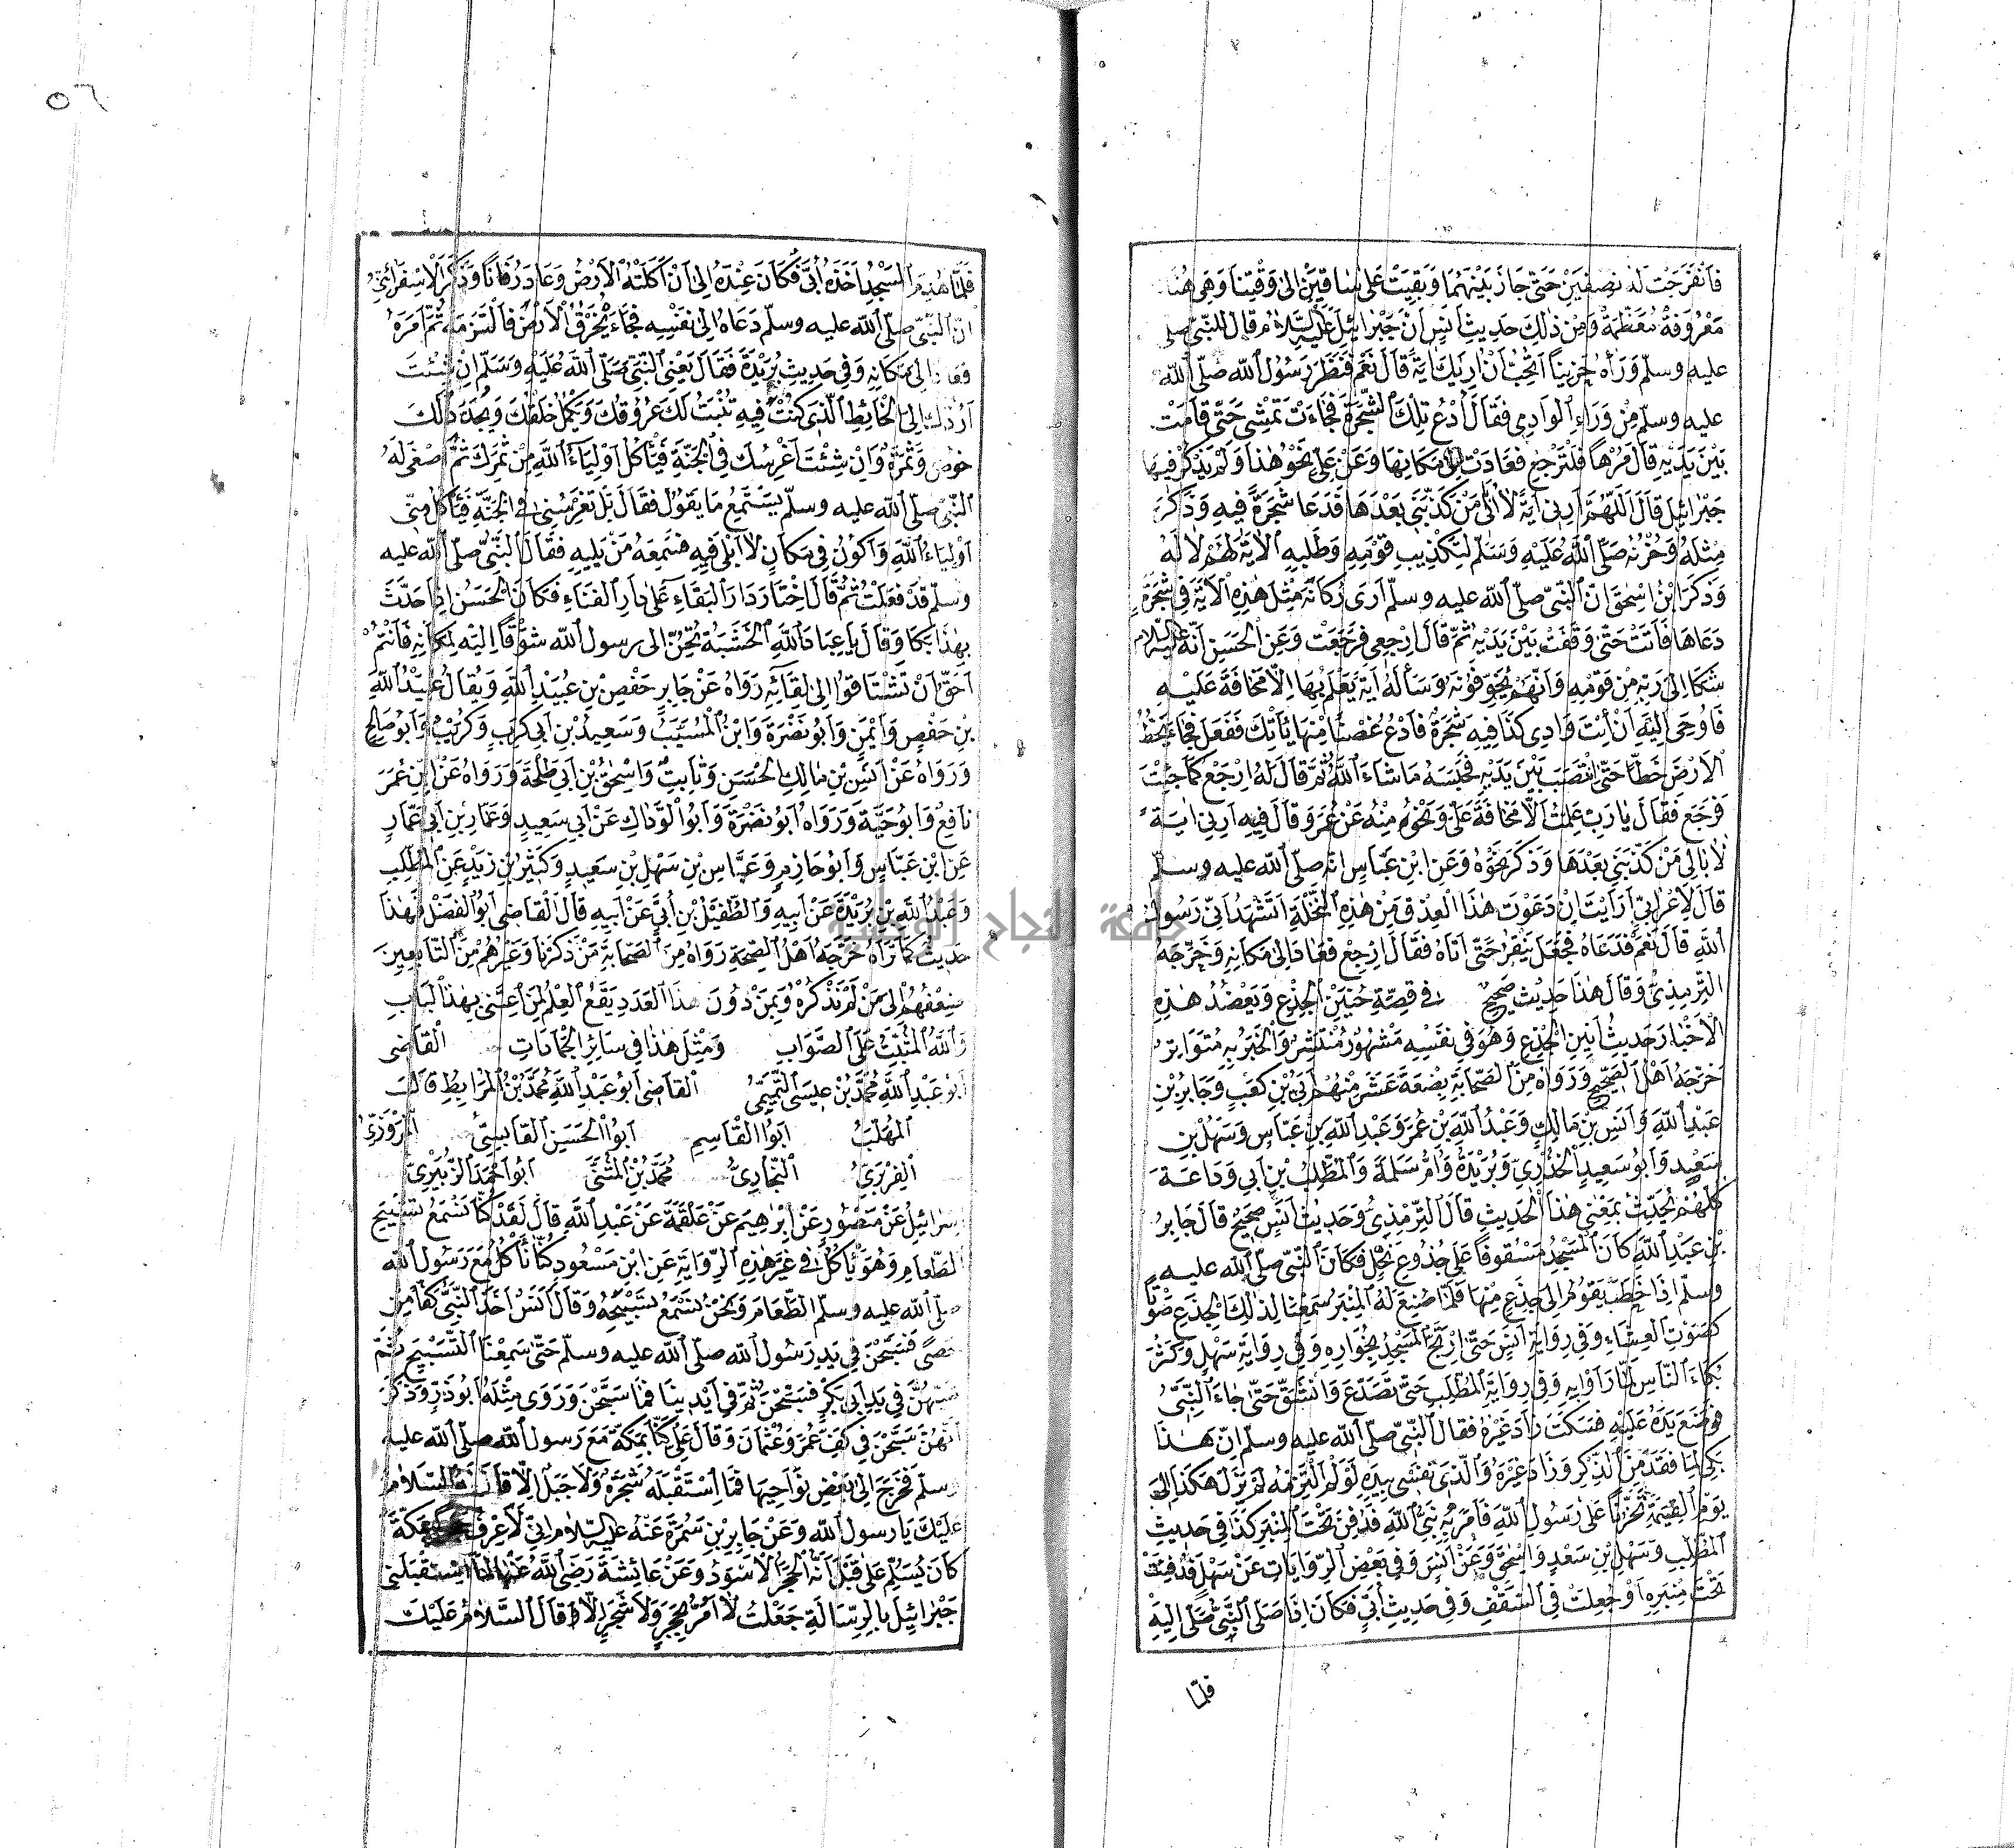 فَانْفَرَجَتْ لَهُ نِصْفَيْنِ حَتَّى جَازَ بَيْنَهُمَا وَبَقِيَتْ عَلَى سَاقَيْنِ إِلَى وَقْتِنَا وَهِيَ هُنَا
مَعْرُوفَةٌ مُعَظَّمَةٌ وَمِنْ ذَلِكَ حَدِيثُ أَنَسٍ أَنَّ جَبْرَائِيلَ عَلَيْهِ السَّلَامُ قَالَ لِلنَّبِيِّ صلى
عليه وسلّم وَرَآهُ حَزِينًا أَتُحِبُّ أَنْ أُرِيَكَ آيَةً قَالَ نَعَمْ فَنَظَرَ رَسُولُ اللّه صلّى اللّه
عليه وسلّم مِنْ وَرَاءِ الْوَادِي فَقَالَ أُدْعُ تِلْكَ الشَّجَرَةَ فَجَاءَتْ تَمْشِي حَتَّى قَامَتْ
بَيْنَ يَدَيْهِ قَالَ مُرْهَا فَلْتَرْجِعْ فَعَادَتْ إِلَى مَكَانِهَا وَعَنْ عَلِيٍّ نَحْوُ هٰذَا وَلَمْ يَذْكُرْ فِيهَا
جَبْرَائِيلَ قَالَ اَللّٰهُمَّ أَرِنِي آيَةً لَا أُبَالِي مَنْ كَذَّبَنِي بَعْدَهَا فَدَعَا شَجَرَةً فِيهِ وَذَكَرَ
مِثْلَهُ وَحُزْنُهُ صَلَّى اللّٰهُ عَلَيْهِ وَسَلَّمَ لِتَكْذِيبِ قَوْمِهِ وَطَلَبِهِ الْآيَةَ لَهُمْ لَا لَهُ
وَذَكَرَ ابْنُ إِسْحٰقَ أَنَّ النَّبِيَّ صلّى اللّه عليه وسلّم أَرَى رُكَانَةَ مِثْلَ هٰذِهِ الْآيَةِ فِي شَجَرَةٍ
دَعَاهَا فَأَتَتْ حَتَّى وَقَفَتْ بَيْنَ يَدَيْهِ ثُمَّ قَالَ ارْجِعِي فَرَجَعَتْ وَعَنِ الْحَسَنِ أَنَّهُ عليه السّلام
شَكَا إِلَى رَبِّهِ مِنْ قَوْمِهِ وَأَنَّهُمْ يُخَوِّفُونَهُ وَسَأَلَهُ آيَةً يَعْلَمُ بِهَا أَلَّا مَخَافَةَ عَلَيْهِ
فَأُوحِيَ إِلَيْهِ أَنِ ائْتِ وَادِي كَذَا فِيهِ شَجَرَةٌ فَادْعُ غُصْنًا مِنْهَا يَأْتِكَ فَفَعَلَ فَجَاءَ يَخُطُّ
الْأَرْضَ خَطًّا حَتَّى انْتَصَبَ بَيْنَ يَدَيْهِ فَحَبَسَهُ مَا شَاءَ اللّٰهُ ثُمَّ قَالَ لَهُ ارْجِعْ كَمَا جِئْتَ
فَرَجَعَ فَقَالَ يَا رَبِّ عَلِمْتُ أَلَّا مَخَافَةَ عَلَيَّ وَنَحْوٌ مِنْهُ عَنْ عُمَرَ وَقَالَ فِيهِ أَرِنِي آيَةً
لَا أُبَالِي مَنْ كَذَّبَنِي بَعْدَهَا وَذَكَرَ نَحْوَهُ وَعَنِ ابْنِ عَبَّاسٍ أَنَّهُ صلّى اللّه عليه وسلّم
قَالَ لِأَعْرَابِيٍّ أَرَأَيْتَ إِنْ دَعَوْتُ هٰذَا الْعِذْقَ مِنْ هٰذِهِ النَّخْلَةِ أَتَشْهَدُ أَنِّي رَسُولُ
اللّٰهِ قَالَ نَعَمْ فَدَعَاهُ فَجَعَلَ يَنْقُزُ حَتَّى أَتَاهُ فَقَالَ ارْجِعْ فَعَادَ إِلَى مَكَانِهِ وَخَرَّجَهُ
التِّرْمِذِيُّ وَقَالَ هٰذَا حَدِيثٌ صَحِيحٌ فِي قِصَّةِ حَنِينِ الْجِذْعِ وَيَعْضُدُ هٰذِهِ
الْأَخْبَارَ حَدِيثُ أَنِينِ الْجِذْعِ وَهُوَ فِي نَفْسِهِ مَشْهُورٌ مُنْتَشِرٌ وَالْخَبَرُ بِهِ مُتَوَاتِرٌ
خَرَّجَهُ أَهْلُ الصَّحِيحِ وَرَوَاهُ مِنَ الصَّحَابَةِ بِضْعَةَ عَشَرَ مِنْهُمْ أُبَيُّ بْنُ كَعْبٍ وَجَابِرُ بْنُ
عَبْدِ اللّٰهِ وَأَنَسِ بْنِ مَالِكٍ وَعَبْدُ اللّٰهِ بْنِ عُمَرَ وَعَبْدِ اللّٰهِ بْنِ عَبَّاسٍ وَسَهْلِ بْنِ
سَعِيدٍ وَأَبُو سَعِيدٍ الْخُدْرِيِّ وَبُرَيْدَةُ وَأُمُّ سَلَمَةَ وَالْمُطَّلِبُ بْنِ أَبِي وَدَاعَةَ
كُلُّهُمْ يُحَدِّثُ بِمَعْنَى هٰذَا الْحَدِيثِ قَالَ التِّرْمِذِيُّ وَحَدِيثُ أَنَسٍ صَحِيحٌ قَالَ جَابِرُ
بْنِ عَبْدِ اللّٰهِ كَانَ الْمَسْجِدُ مَسْقُوفًا عَلَى جُذُوعِ نَخْلٍ فَكَانَ النَّبِيُّ صلّى اللّه عليه
وسلّم إِذَا خَطَبَ يَقُومُ إِلَى جِذْعٍ مِنْهَا فَلَمَّا صُنِعَ لَهُ الْمِنْبَرُ سَمِعْنَا لِذٰلِكَ الْجِذْعِ صَوْتًا
كَصَوْتِ الْعِشَاءِ وَفِي رِوَايَةِ أَنَسٍ حَتَّى ارْتَجَّ الْمَسْجِدُ بِخُوَارِهِ وَفِي رِوَايَةِ سَهْلٍ وَكَثُرَ
بُكَاءُ النَّاسِ لَمَّا رَأَوْا بِهِ وَفِي رِوَايَةِ الْمُطَّلِبِ حَتَّى تَصَدَّعَ وَانْشَقَّ حَتَّى جَاءَ النَّبِيُّ
فَوَضَعَ يَدَهُ عَلَيْهِ فَسَكَتَ زَادَ غَيْرُهُ فَقَالَ النَّبِيُّ صلّى اللّه عليه وسلّم إِنَّ هٰذَا
بَكَى لِمَا فَقَدَ مِنَ الذِّكْرِ وَزَادَ غَيْرُهُ وَالَّذِي نَفْسِي بِيَدِهِ لَوْ لَمْ أَلْتَزِمْهُ لَمْ يَزَلْ هٰكَذَا إِلَى
يَوْمِ الْقِيٰمَةِ تَحَزُّنًا عَلَى رَسُولِ اللّٰهِ فَأَمَرَ بِهِ نَبِيُّ اللّٰهِ فَدُفِنَ تَحْتَ الْمِنْبَرِ كَذَا فِي حَدِيثِ
الْمُطَّلِبِ وَسَهْلِ بْنِ سَعْدٍ وَإِسْحٰقَ وَعَنْ أَنَسٍ وَفِي بَعْضِ الرِّوَايَاتِ عَنْ سَهْلٍ فَدُفِنَتْ
تَحْتَ مِنْبَرِهِ أَوْ جُعِلَتْ فِي السَّقْفِ وَفِي حَدِيثِ أُبَيٍّ فَكَانَ إِذَا صَلَّى النَّبِيُّ صَلَّى إِلَيْهِ
فلمّا
٥٦
فَلَمَّا هُدِمَ الْمَسْجِدُ أَخَذَهُ أُبَيٌّ فَكَانَ عِنْدَهُ إِلَى أَنْ أَكَلَتْهُ الْأَرْضُ وَعَادَ رُفَاتًا وَذَكَرَ الْإِسْفَرَائِنِيُّ
أَنَّ النَّبِيَّ صلّى اللّه عليه وسلّم دَعَاهُ إِلَى نَفْسِهِ فَجَاءَ يَخْرِقُ الْأَرْضَ فَالْتَزَمَهُ ثُمَّ أَمَرَهُ
فَعَادَ إِلَى مَكَانِهِ وَفِي حَدِيثِ بُرَيْدَةَ فَقَالَ يَعْنِي النَّبِيَّ صَلَّى اللّٰهُ عَلَيْهِ وَسَلَّمَ إِنْ شِئْتَ
أَرُدُّكَ إِلَى الْحَائِطِ الَّذِي كُنْتَ فِيهِ تُنْبَتُ لَكَ عُرُوقُكَ وَيَكْمُلُ خَلْقُكَ وَيُجَدَّدُ لَكَ
خُوصٌ وَثَمَرَةٌ وَإِنْ شِئْتَ أَغْرِسُكَ فِي الْجَنَّةِ فَيَأْكُلُ أَوْلِيَاءُ اللّٰهِ مِنْ ثَمَرِكَ ثُمَّ أَصْغَى لَهُ
النَّبِيُّ صلّى اللّه عليه وسلّم يَسْتَمِعُ مَا يَقُولُ فَقَالَ بَلْ تَغْرِسُنِي فِي الْجَنَّةِ فَيَأْكُلُ مِنِّي
أَوْلِيَاءُ اللّٰهِ وَأَكُونُ فِي مَكَانٍ لَا أَبْلَى فِيهِ فَسَمِعَهُ مَنْ يَلِيهِ فَقَالَ النَّبِيُّ صلّى اللّه عليه
وسلّم قَدْ فَعَلْتُ ثُمَّ قَالَ اخْتَارَ دَارَ الْبَقَاءِ عَلَى دَارِ الْفَنَاءِ فَكَانَ الْحَسَنُ إِذَا حَدَّثَ
بِهٰذَا بَكَا وَقَالَ يَا عِبَادَ اللّٰهِ الْخَشَبَةُ تَحِنُّ إلى رسول اللّه شَوْقًا إِلَيْهِ لِمَكَانِهِ فَأَنْتُمْ
أَحَقُّ أَنْ تَشْتَاقُوا إِلَى لِقَائِهِ رَوَاهُ عَنْ جَابِرٍ حَفْصُ بْنُ عُبَيْدِ اللّٰهِ وَيُقَالُ عُبَيْدُ اللّٰهِ
بْنِ حَفْصٍ وَأَيْمَنَ وَأَبُو نَضْرَةَ وَابْنُ الْمُسَيَّبِ وَسَعِيدُ بْنِ أَبِي كَرِبٍ وَكُرَيْبٌ وَأَبُو صَالِحٍ
وَرَوَاهُ عَنْ أَنَسِ بْنِ مَالِكٍ الْحَسَنِ وَثَابِتٌ وَإِسْحٰقُ بْنِ أَبِي طَلْحَةَ وَرَوَاهُ عَنْ ابْنِ عُمَرَ
نَافِعٌ وَأَبُو حَيَّةَ وَرَوَاهُ أَبُو نَضْرَةَ وَأَبُو الْوَدَّاكِ عَنْ أَبِي سَعِيدٍ وَعَمَّارِ بْنِ أَبِي عَمَّارٍ
عَنِ ابْنِ عَبَّاسٍ وَأَبُو حَازِمٍ وَعَبَّاسِ بْنِ سَهْلِ بْنِ سَعِيدٍ وَكَثِيرُ بْنِ زَيْدٍ عَنِ الْمُطَّلِبِ
وَعَبْدُ اللّٰهِ بْنِ بُرَيْدَةَ عَنْ أَبِيهِ وَالطُّفَيْلُ بْنِ أُبَيٍّ عَنْ أَبِيهِ قَالَ الْقَاضِي أَبُو الْفَضْلِ فَهٰذَا
حَدِيثٌ كَمَا تَرَاهُ خَرَّجَهُ أَهْلُ الصِّحَّةِ رَوَاهُ مِنَ الصَّحَابَةِ مَنْ ذَكَرْنَا وَغَيْرُهُمْ مِنَ التَّابِعِينَ
ضِعْفُهُمْ إِلَى مَنْ لَمْ نَذْكُرْهُ وَبِمَنْ دُونَ هٰذَا الْعَدَدِ يَقَعُ الْعِلْمُ لِمَنِ اعْتَنَى بِهٰذَا الْبَابِ
وَاللّٰهُ الْمُثَبِّتُ عَلَى الصَّوَابِ وَمِثْلُ هٰذَا فِي سَائِرِ الْجَمَادَاتِ الْقَاضِي
أَبُو عَبْدِ اللّٰهِ مُحَمَّدُ بْنُ عِيسَى التَّمِيمِيُّ الْقَاضِي أَبُو عَبْدِ اللّٰهِ مُحَمَّدُ بْنُ الْمُرَابِطِ قَالَ
الْمُهَلَّبُ أَبُو الْقَاسِمِ أَبُو الْحَسَنِ الْقَابِسِيُّ الْمَرْوَزِيُّ
الْفِرَبْرِيُّ الْبُخَارِيُّ مُحَمَّدُ بْنُ الْمُثَنَّى أَبُو أَحْمَدَ الزُّبَيْرِيُّ
إِسْرَائِيلُ عَنْ مَنْصُورٍ عَنْ إِبْرٰهِيمَ عَنْ عَلْقَمَةَ عَنْ عَبْدِ اللّٰهِ قَالَ لَقَدْ كُنَّا نَسْمَعُ تَسْبِيحَ
الطَّعَامِ وَهُوَ يُأْكَلُ فِي غَيْرِ هٰذِهِ الرِّوَايَةِ عَنِ ابْنِ مَسْعُودٍ كُنَّا نَأْكُلُ مَعَ رَسُولِ اللّٰه
صلّى اللّه عليه وسلّم الطَّعَامَ وَنَحْنُ نَسْمَعُ تَسْبِيحَهُ وَقَالَ أَنَسٌ أَخَذَ النَّبِيُّ كَفًّا مِنْ
حَصًى فَسَبَّحْنَ فِي يَدِ رَسُولِ اللّٰه صلّى اللّه عليه وسلّم حَتَّى سَمِعْنَا التَّسْبِيحَ ثُمَّ
صَبَّهُنَّ فِي يَدِ أَبِي بَكْرٍ فَسَبَّحْنَ ثُمَّ فِي أَيْدِينَا فَمَا سَبَّحْنَ وَرَوَى مِثْلَهُ أَبُو ذَرٍّ وَذَكَرَ
أَنَّهُنَّ سَبَّحْنَ فِي كَفِّ عُمَرَ وَعُثْمَانَ وَقَالَ عَلِيٌّ كُنَّا بِمَكَّةَ مَعَ رَسُولِ اللّٰه صلّى اللّه عليه
وسلّم فَخَرَجَ إِلَى بَعْضِ نَوَاحِيهَا فَمَا اسْتَقْبَلَهُ شَجَرَةٌ وَلَا جَبَلٌ إِلَّا قَالَ لَهُ السَّلَامُ
عَلَيْكَ يَا رسول اللّه وَعَنْ جَابِرِ بْنِ سَمُرَةَ عَنْهُ عليه السّلام إِنِّي لَأَعْرِفُ بِمَكَّةَ
كَانَ يُسَلِّمُ عَلَيَّ قِيلَ أَنَّهُ الْحَجَرُ الْأَسْوَدُ وَعَنْ عَائِشَةَ رَضِيَ اللّٰهُ عَنْهَا لَمَّا اسْتَقْبَلَنِي
جَبْرَائِيلُ بِالرِّسَالَةِ جَعَلْتُ لَا أَمُرُّ بِحَجَرٍ وَلَا شَجَرٍ إِلَّا قَالَ السَّلَامُ عَلَيْكَ
جامعة النجاح الوطنية